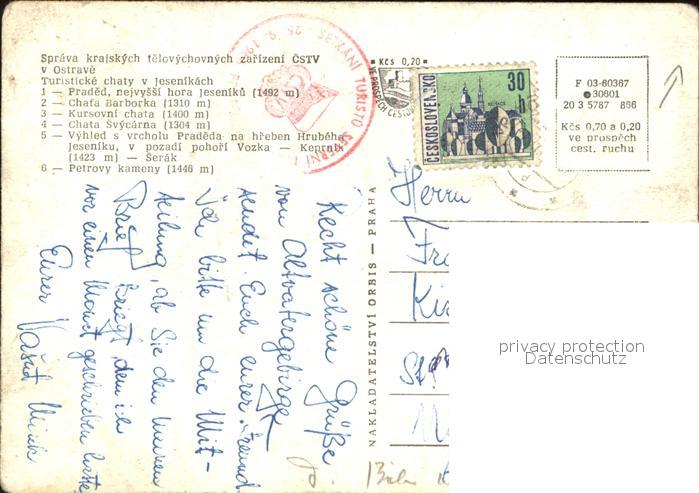 Správa krajských tělovýchovných zařízení ČSTV
v Ostravě
Turistické chaty v Jeseníkách
1 — Praděd, nejvyšší hora Jeseníků (1492 m)
2 — Chata Barborka (1310 m)
3 — Kursovní chata (1400 m)
4 — Chata Švýcárna (1304 m)
5 — Výhled s vrcholu Praděda na hřeben Hrubého
Jeseníku, v pozadí pohoří Vozka — Keprník
(1423 m) — Šerák
6 — Petrovy kameny (1446 m)
SETKÁNÍ TURISTŮ
Kčs 0,20
VE PROSPĚCH
ČESKOSLOVENSKO
30
h
F 03-60367
30601
20 3 5787 866
Kčs 0,70 a 0,20
ve prospěch
cest. ruchu
NAKLADATELSTVÍ ORBIS — PRAHA
Recht schöne Grüße
von Altvatergebirge
sendet Euch eurer Freund
Ich bitte um die Mit-
teilung, ob Sie den meinen
Brief kriegt, dem ich
vor einen Monat geschrieben hatte
Eurer
Herrn
privacy protection
Datenschutz